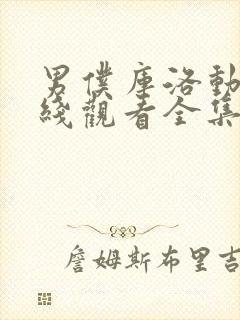 男僕庫洛動
綫觀看全集
詹姆斯布里吉